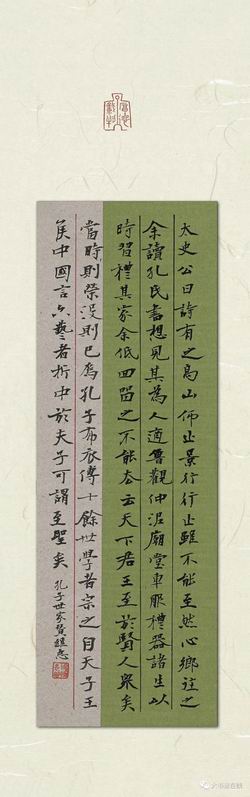 太史公曰詩有之高山仰止景行行止雖不能至然心鄉往之
余讀孔氏書想見其為人適魯觀仲尼廟堂車服禮器諸生以
時習禮其家余低回留之不能去云天下君王至於賢人眾矣
當時則榮沒則已焉孔子布衣傳十餘世學者宗之自天子王
矦中國言六藝者折中於夫子可謂至聖矣
孔子世家贊